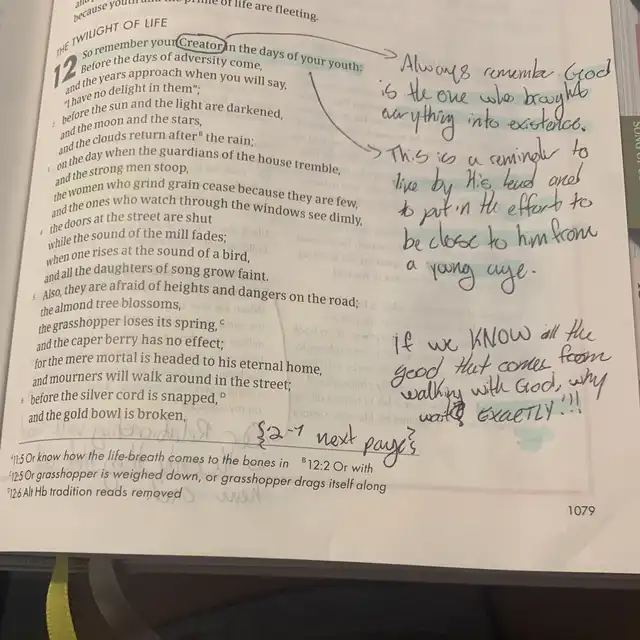 because youth and the prime of life are fleeting.
THE TWILIGHT OF LIFE
12 So remember your Creator in the days of your youth:
Before the days of adversity come,
and the years approach when you will say,
"I have no delight in them";
2 before the sun and the light are darkened,
and the moon and the stars,
and the clouds return after B the rain;
3 on the day when the guardians of the house tremble,
and the strong men stoop,
the women who grind grain cease because they are few,
and the ones who watch through the windows see dimly,
4 the doors at the street are shut
while the sound of the mill fades;
when one rises at the sound of a bird,
and all the daughters of song grow faint.
5 Also, they are afraid of heights and dangers on the road;
the almond tree blossoms,
the grasshopper loses its spring, C
and the caper berry has no effect;
for the mere mortal is headed to his eternal home,
and mourners will walk around in the street;
6 before the silver cord is snapped, D
and the gold bowl is broken,
Always remember God
is the one who brought
everything into existence.
This is a reminder to
live by His lead and
to put in the effort to
be close to him from
a young age.
if we KNOW all the
good that comes from
walking with God, why
wait? EXACTLY!!!
{2-7 next page}
A 11:5 Or know how the life-breath comes to the bones in B 12:2 Or with
C 12:5 Or grasshopper is weighed down, or grasshopper drags itself along
D 12:6 Alt Hb tradition reads removed
1079